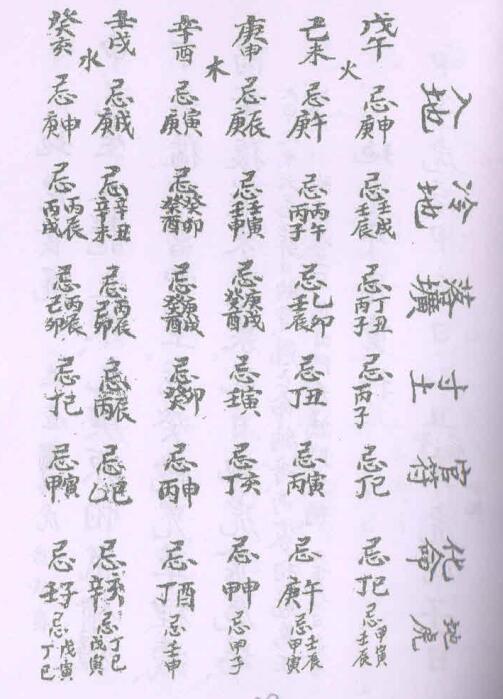 入地 冷地 寸土 官符 化命 地虎
戊午 忌庚申 忌壬戌壬辰 忌丁丑丙子 忌丙子 忌丁巳 忌丁巳 忌甲寅壬辰
火
己未 忌庚午 忌丙午丙子 忌乙卯壬辰 忌丁丑 忌丙寅 忌庚午 忌壬辰甲寅
庚申 忌庚辰 忌壬寅壬申 忌庚戌癸酉 忌壬寅 忌丁亥 忌甲申 忌甲子
木
辛酉 忌庚寅 忌癸卯癸酉 忌庚戌癸酉 忌癸卯 忌丙申 忌丁酉 忌壬申
壬戌 忌庚戌 忌辛丑辛未 忌丙辰 忌丙辰 忌乙巳 忌辛亥 忌丁巳戊寅
水
癸亥 忌庚申 忌丙辰丙戌 忌丙辰 忌丁巳 忌甲寅 忌壬子 忌戊寅丁巳